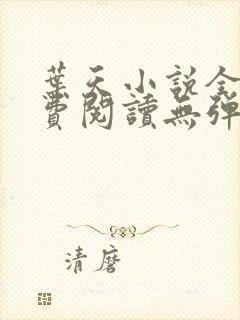 葉天小說全
費閱讀無彈
清磨